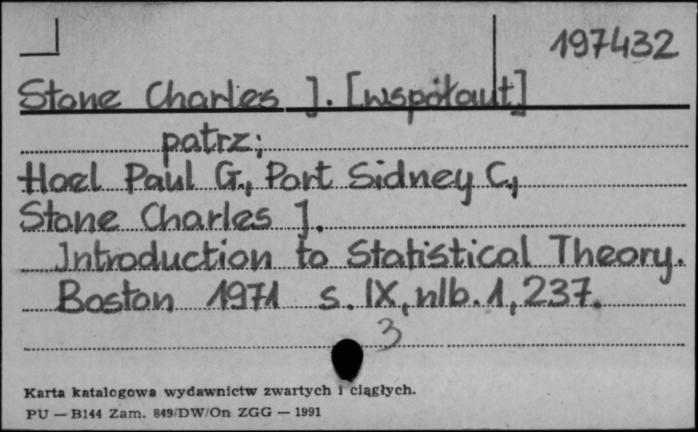 197432
Stone Charles J. [współaut]
patrz;
Hoel Paul G., Port Sidney C.,
Stone Charles J.
Introduction to Statistical Theory.
Boston 1971 s. IX, nlb. 1, 237.
3
Karta katalogowa wydawnictw zwartych i ciągłych.
PU — B144 Zam. 849/DW/On ZGG — 1991